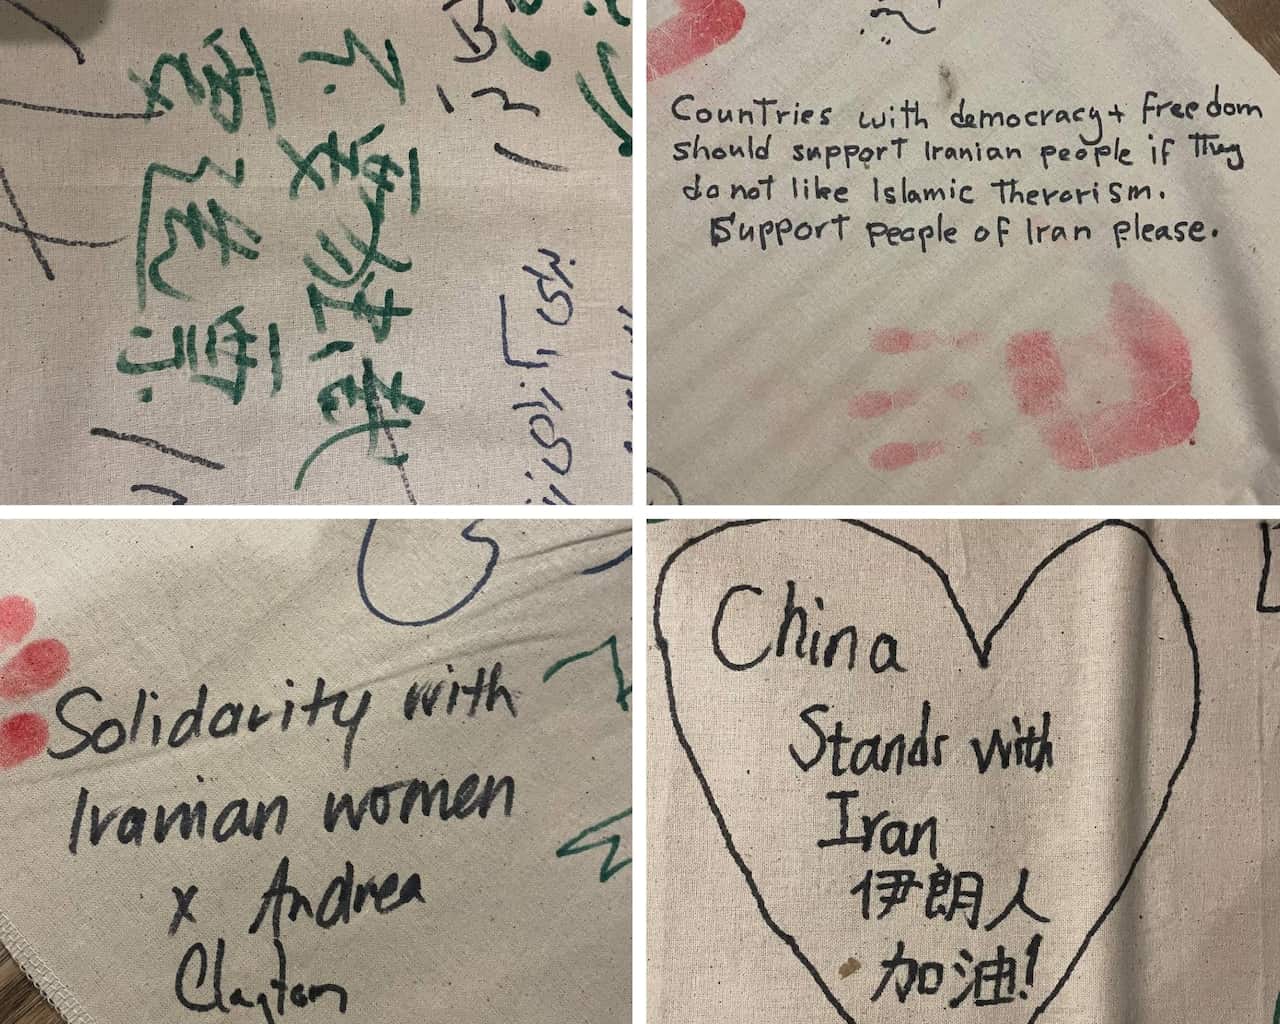 不要独裁
要选票
Countries with democracy + freedom
should support Iranian people if They
do not like Islamic Therorism.
Support people of Iran please.
Solidarity with
Iranian women
x Andrea
Clayton
China
Stands with
Iran
伊朗人
加油!